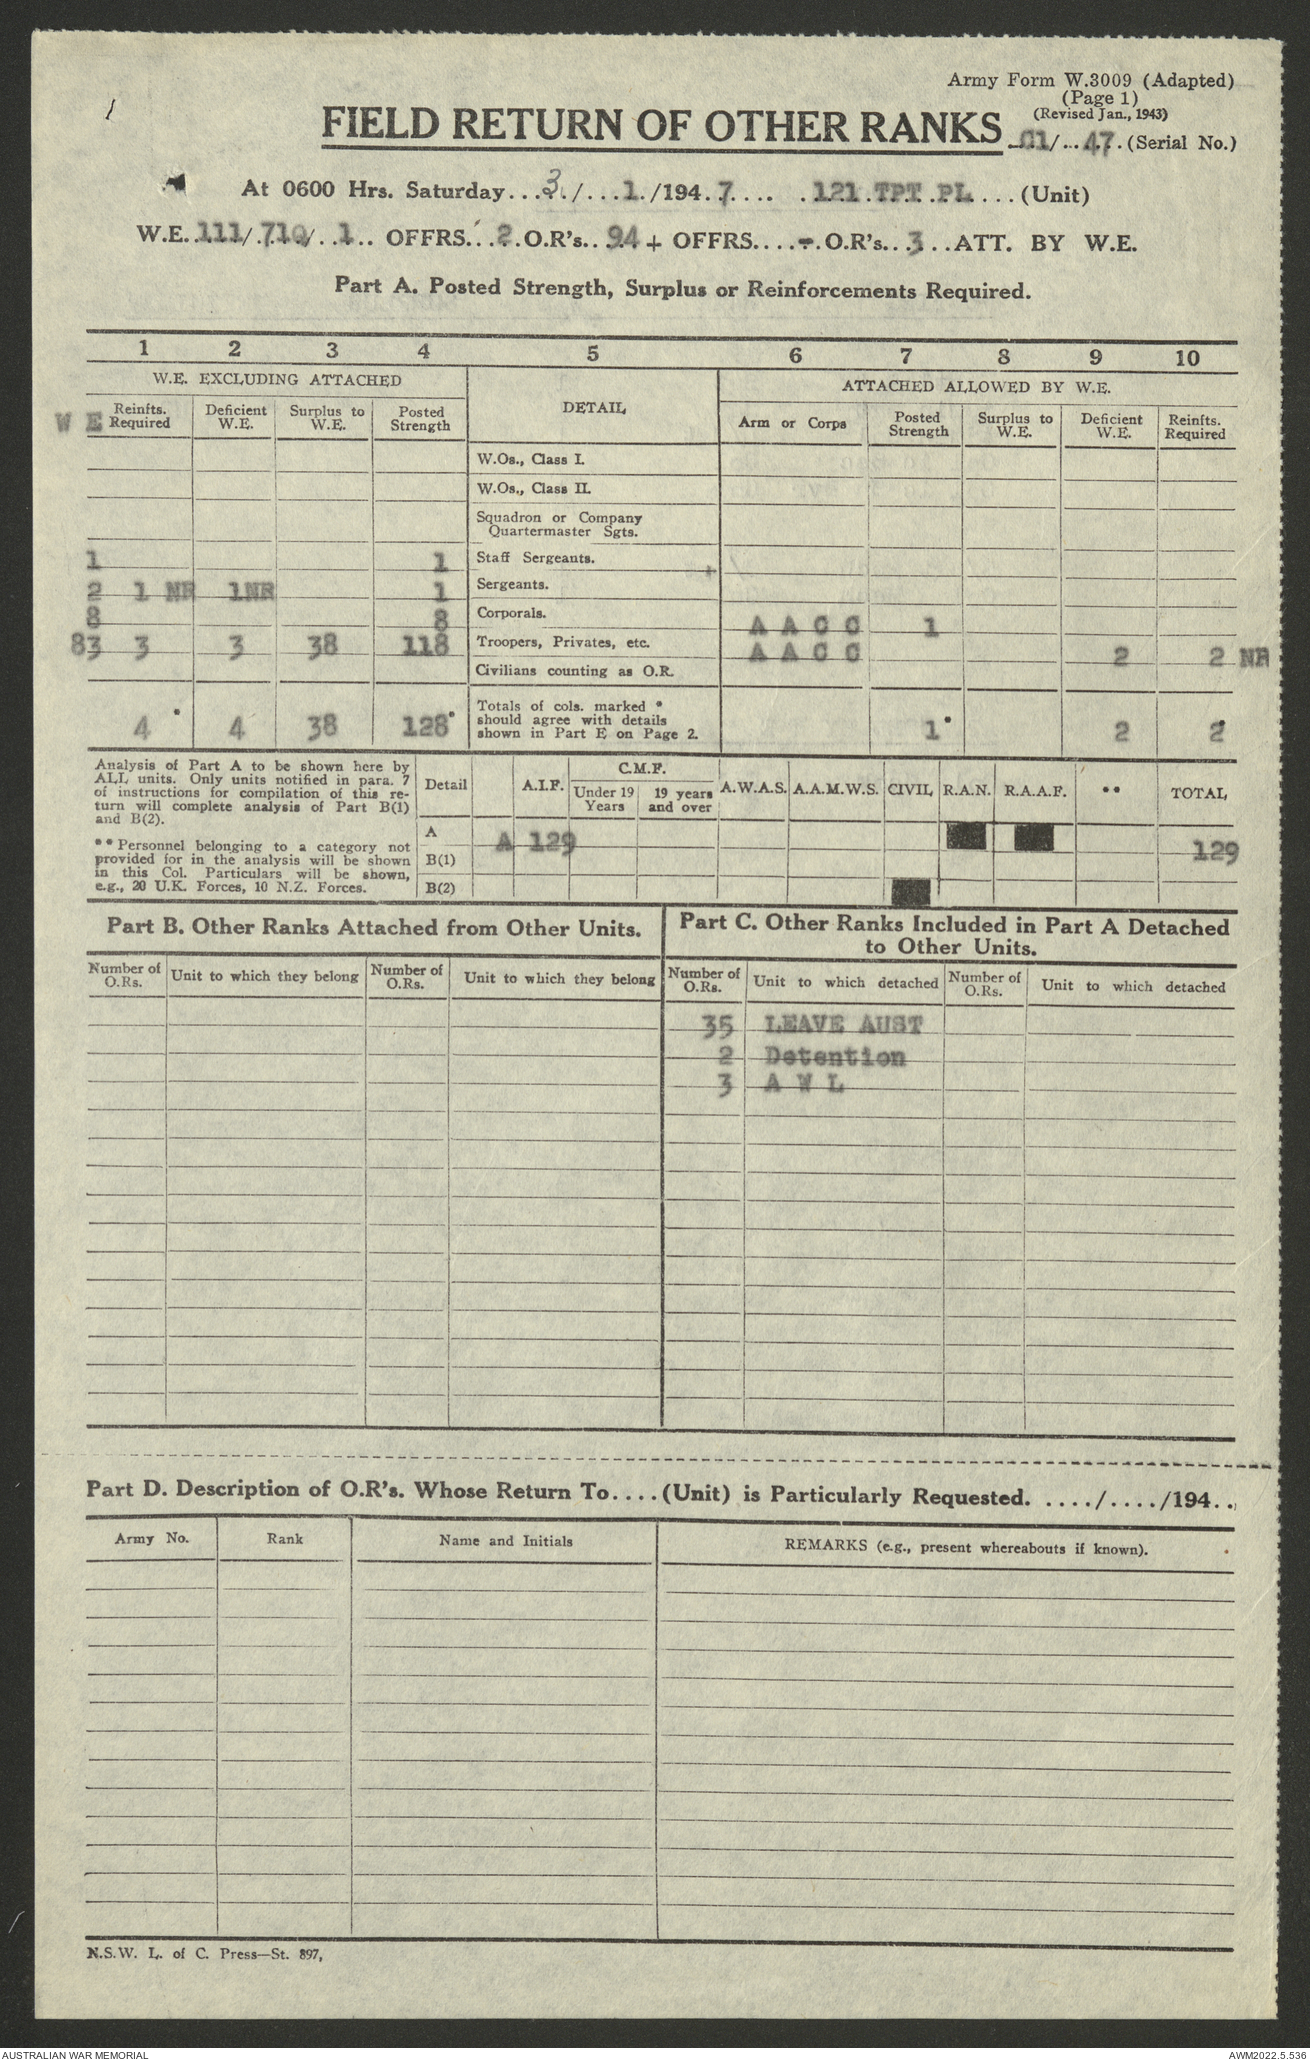 Army Form W.3009 (Adapted)
(Page 1)
(Revised Jan., 1943)
FIELD RETURN OF OTHER RANKS
01/..47. (Serial No.)
At 0600 Hrs. Saturday...3./...1./194.7.... .121.TPT.PL....(Unit)
W.E. 111/.710/..1.. OFFRS...2.O.R's..94+ OFFRS....-.O.R's...3..ATT. BY W.E.
Part A. Posted Strength, Surplus or Reinforcements Required.
1 2 3 4 5 6 7 8 9 10
W.E. EXCLUDING ATTACHED
DETAIL
ATTACHED ALLOWED BY W.E.
W E
Reinfts. Required
Deficient W.E.
Surplus to W.E.
Posted Strength
Arm or Corps
Posted Strength
Surplus to W.E.
Deficient W.E.
Reinfts. Required
W.Os., Class I.
W.Os., Class II.
Squadron or Company
Quartermaster Sgts.
1 1 Staff Sergeants.
2 1 NR 1NR 1 Sergeants.
8 8 Corporals. A A C C 1
83 3 3 38 118 Troopers, Privates, etc. A A C C 2 2 NR
Civilians counting as O.R.
Totals of cols. marked *
should agree with details
shown in Part E on Page 2.
4* 4 38 128* 1* 2 2*
Analysis of Part A to be shown here by
ALL units. Only units notified in para. 7
of instructions for compilation of this re-
turn will complete analysis of Part B(1)
and B(2).
** Personnel belonging to a category not
provided for in the analysis will be shown
in this Col. Particulars will be shown,
e.g., 20 U.K. Forces, 10 N.Z. Forces.
Detail
A.I.F.
C.M.F.
Under 19 Years
19 years and over
A.W.A.S.
A.A.M.W.S.
CIVIL
R.A.N.
R.A.A.F.
**
TOTAL
A
A 129 129
B(1)
B(2)
Part B. Other Ranks Attached from Other Units.
Part C. Other Ranks Included in Part A Detached
to Other Units.
Number of O.Rs.
Unit to which they belong
Number of O.Rs.
Unit to which they belong
Number of O.Rs.
Unit to which detached
Number of O.Rs.
Unit to which detached
35 LEAVE AUST
2 Detention
3 A W L
Part D. Description of O.R's. Whose Return To....(Unit) is Particularly Requested. ..../..../194..
Army No.
Rank
Name and Initials
REMARKS (e.g., present whereabouts if known).
N.S.W. L. of C. Press—St. 897,
AUSTRALIAN WAR MEMORIAL
AWM2022.5.536